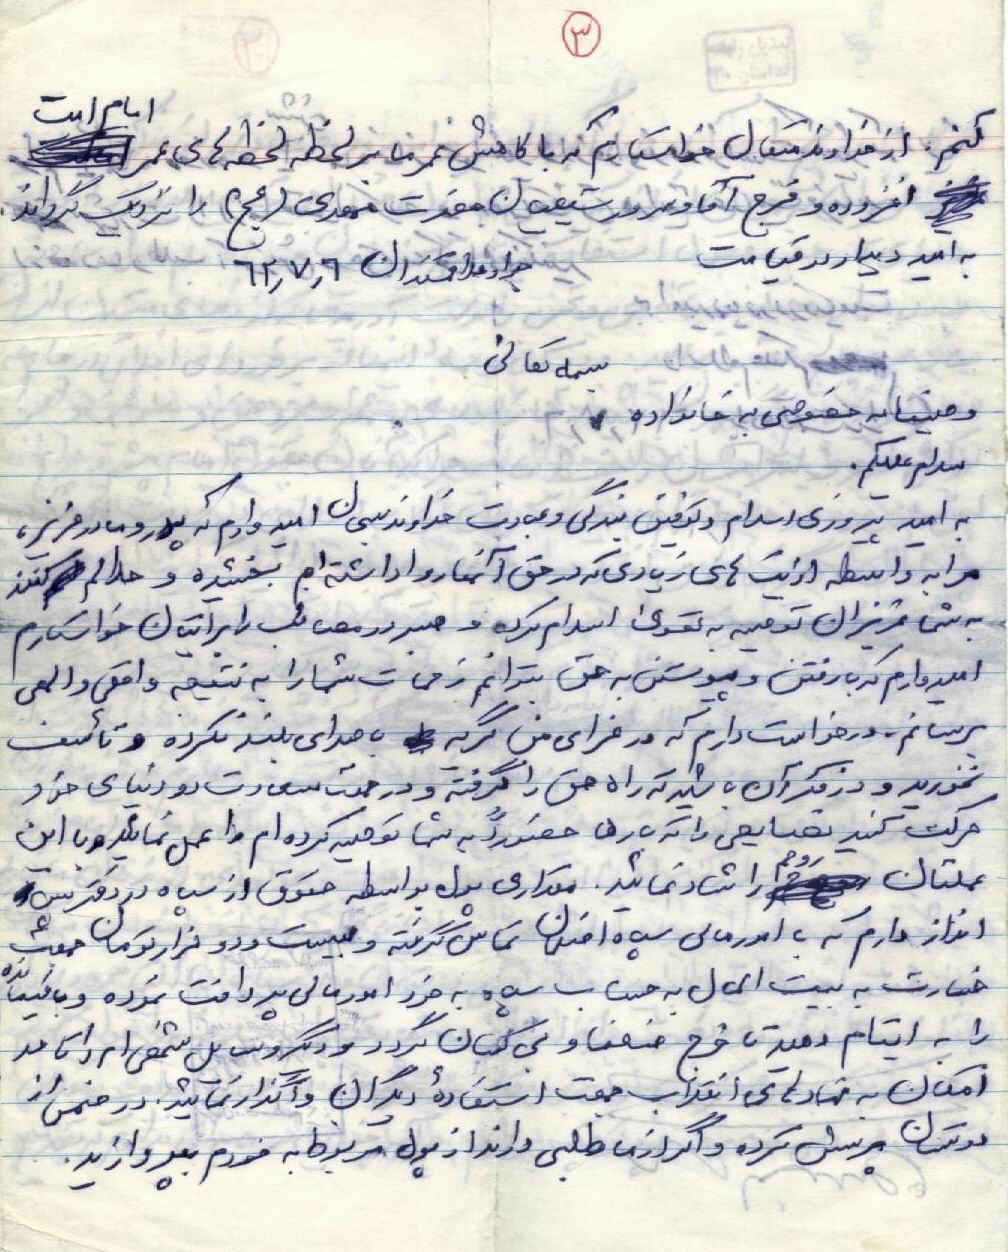 ۳
امام امت
کنم. از خداوند متعال خواستارم که با کاهش عمر ما بر لحظه لحظه‌های عمر
افزوده و فرج آقا و سرور شیعیان حضرت مهدی (عج) را نزدیک گرداند.
به امید دیدار در قیامت
جواد علاقمندان ۶۲٫۷٫۶
بسمه تعالی
وصیتنامه خصوصی به خانواده
سلام علیکم.
به امید پیروزی اسلام و توفیق بندگی و عبادت خداوند سبحان امیدوارم که پدر و مادر عزیز،
مرا به واسطه اذیت های زیادی که در حق آنها روا داشته‌ام بخشیده و حلالم کنند
به شما عزیزان توصیه به تقوی اسلام کرده و صبر در مصائب را برایتان خواستارم
امیدوارم که با رفتن و پیوستن به حق بتوانم زحمات شما را به نتیجه واقعی و الهی
برسانم، درخواست دارم که در عزای من گریه با صدای بلند نکرده و تأسف
نخورید و در فکر آن باشید که راه حق را گرفته و در جهت سعادت دو دنیای خود
حرکت کنید نصایحی را که بارها حضوراً به شما توصیه کرده ام را عمل نمائید و با این
عملتان روحم را شاد نمائید. مقداری پول بواسطه حقوق از سپاه در دفترچه پس
انداز دارم که با امور مالی سپاه اصفهان تماس گرفته و بیست و دو هزار تومان جهت
خسارت به بیت المال به حساب سپاه به خود امور مالی پرداخت نموده و باقیمانده
را به ایتام دهید تا خرج ضعفا و بی کسان گردد و دیگر وسایل شخصی ام را تا حد
امکان به نهادهای انقلاب جهت استفادهٔ دیگران واگذار نمائید. در ضمن از
دوستان پرسش کرده و اگر از ما طلبی دارند از پول مربوط به خودم بپردازید.